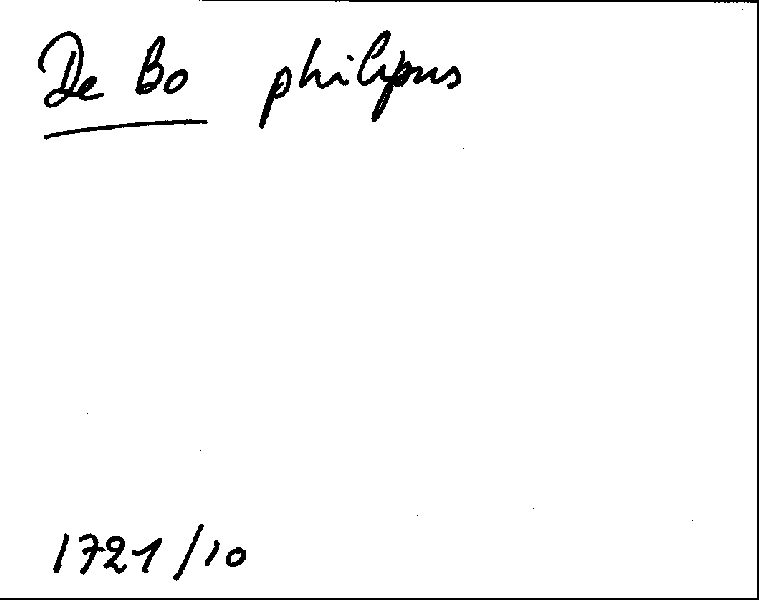 De Bo philipus
1721/10